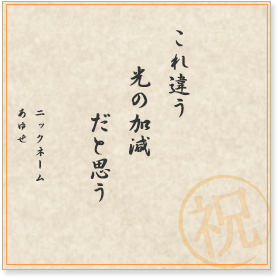 これ違う
光の加減
だと思う
ニックネーム
あゆせ
祝